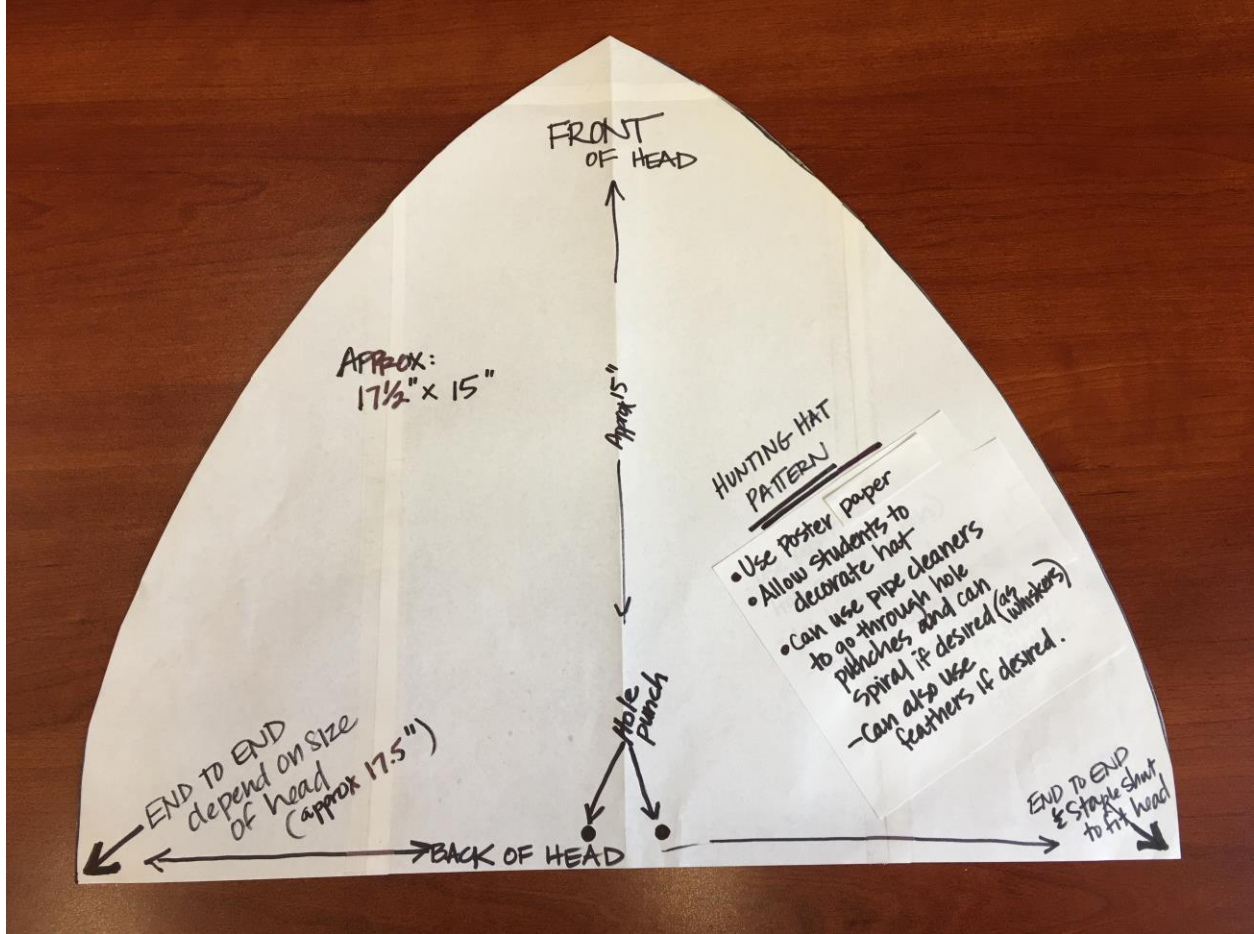 FRONT
OF HEAD
APPROX:
17½" x 15"
Approx 15"
HUNTING HAT
PATTERN
• Use poster paper
• Allow students to
decorate hat
• Can use pipe cleaners
to go through hole
punches and can
spiral if desired (as
whiskers)
- Can also use
feathers if desired.
Hole
punch
END TO END
depend on size
of head
(approx 17.5")
BACK OF HEAD
END TO END
& Staple Shut
to fit head